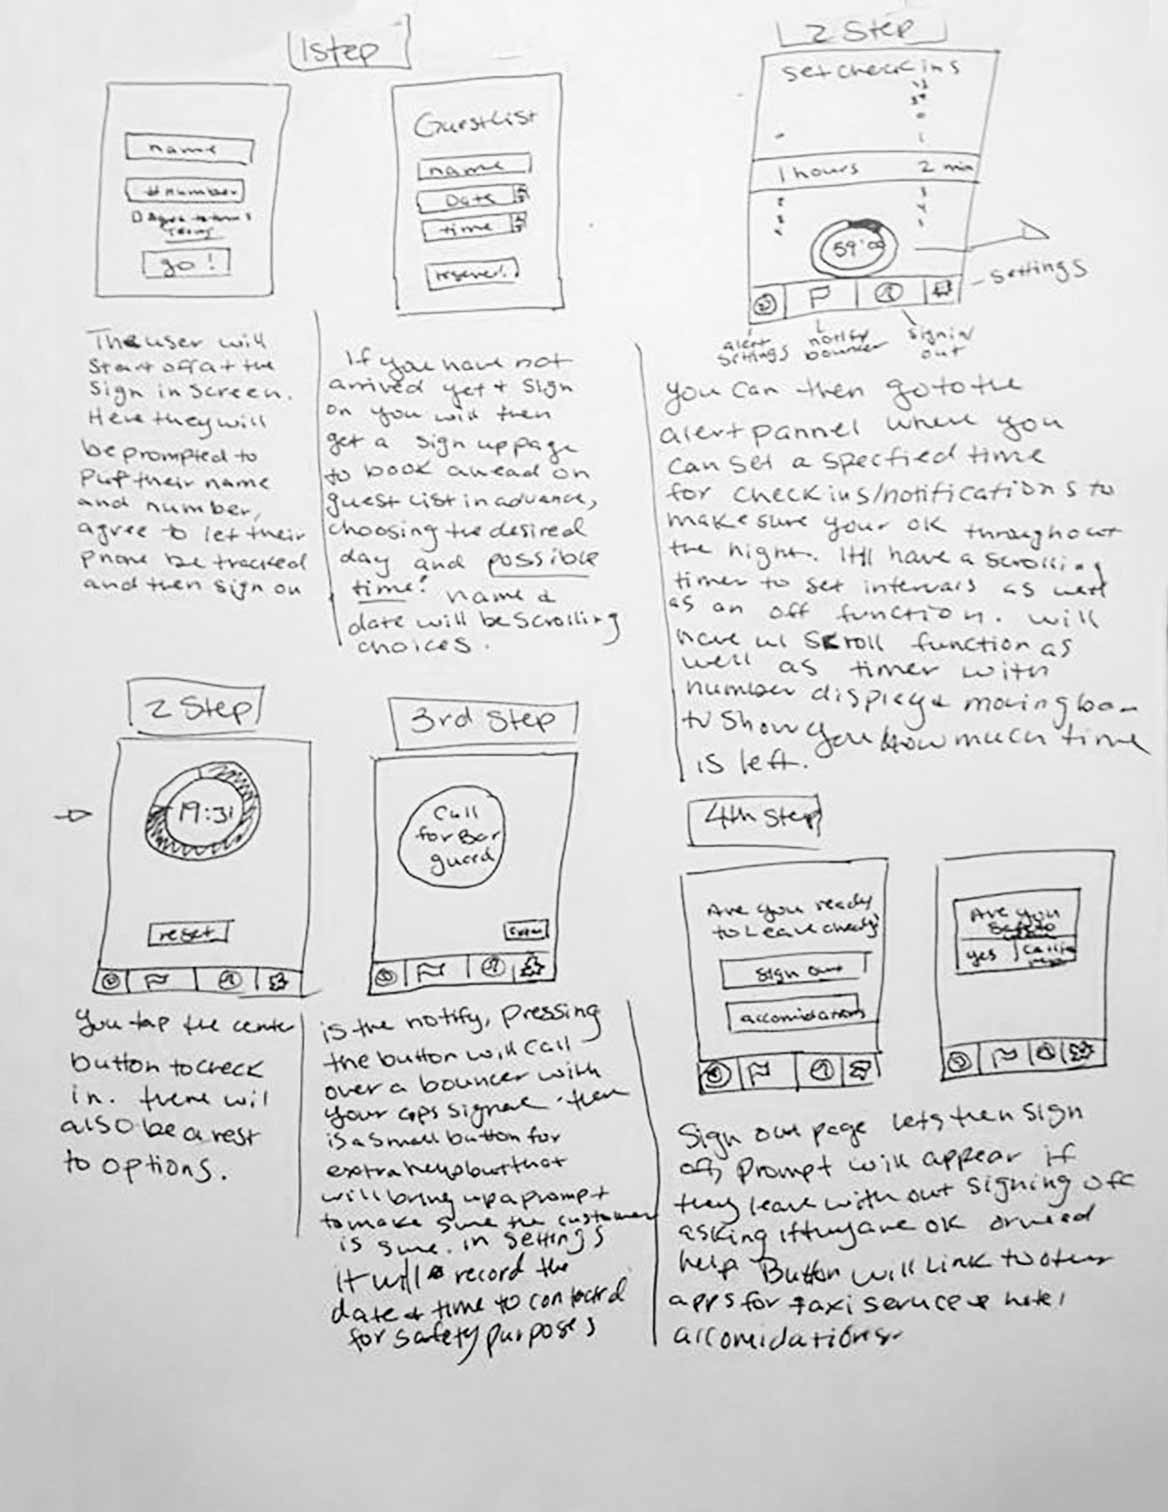 1step
name
#number
Agree to terms
go!
Guestlist
name
Date
time
reserve!
The user will
start off at the
sign in screen.
Here they will
be prompted to
put their name
and number,
agree to let their
phone be tracked
and then sign on
If you have not
arrived yet + sign
on you will then
get a sign up page
to book ahead on
guest list in advance,
choosing the desired
day and possible
time! name &
date will be scrolling
choices.
2 Step
set check ins
1
1 hours 2 min
2 3
3 4
4 5
59:00
settings
alert
settings
notify
bouncer
sign in
out
you can then go to the
alert pannel where you
can set a specfied time
for check ins/notifications to
make sure your ok throughout
the night. It'll have a scrolling
timer to set intervals as well
as an off function. will
have ul scroll function as
well as timer with
number display & moving bar
to show you how much time
is left.
2 Step
19:31
reset
You tap the center
button to check
in. there will
also be a rest
to options.
3rd Step
Call
for Bar
guard
is the notify, pressing
the button will call
over a bouncer with
your GPS signal. then
is a small button for
extra help but that
will bring up a prompt
to make sure the customer
is sure. in settings
it will record the
date & time to contactd
for safety purposes
4th Step
Are you ready
to leave
sign out
accomidations
Are you
yes
Sign out page lets then sign
off, prompt will appear if
they leave with out signing off
asking if they are ok or need
help Button will link to other
apps for taxi service & hotel
accomidations.